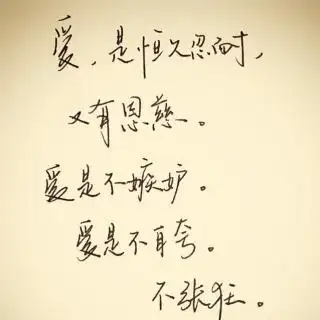 爱，是恒久忍耐，
又有恩慈。
爱是不嫉妒。
爱是不自夸。
不张狂。